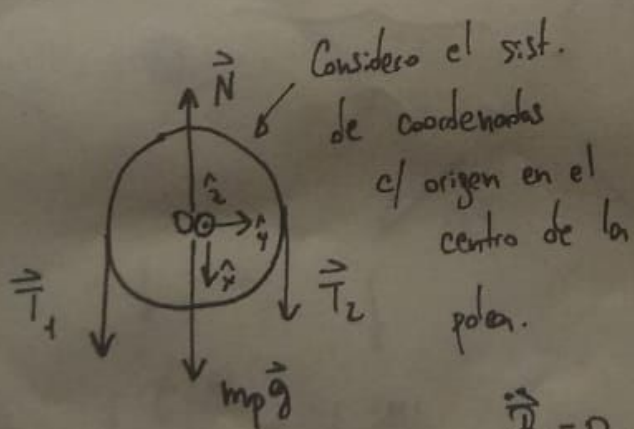 N⃗
Considero el sist.
de coordenadas
c/ origen en el
centro de la
polea.
O ẑ ŷ
x̂
T⃗₁
T⃗₂
mₚg⃗